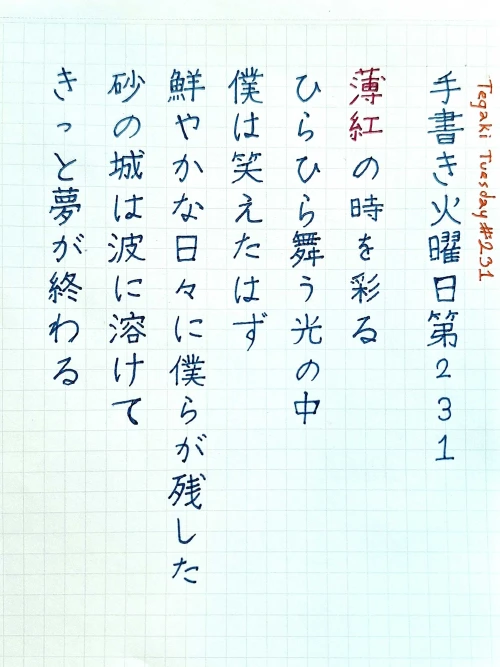 Tegaki Tuesday #231
手書き火曜日第231
薄紅の時を彩る
ひらひら舞う光の中
僕は笑えたはず
鮮やかな日々に僕らが残した
砂の城は波に溶けて
きっと夢が終わる